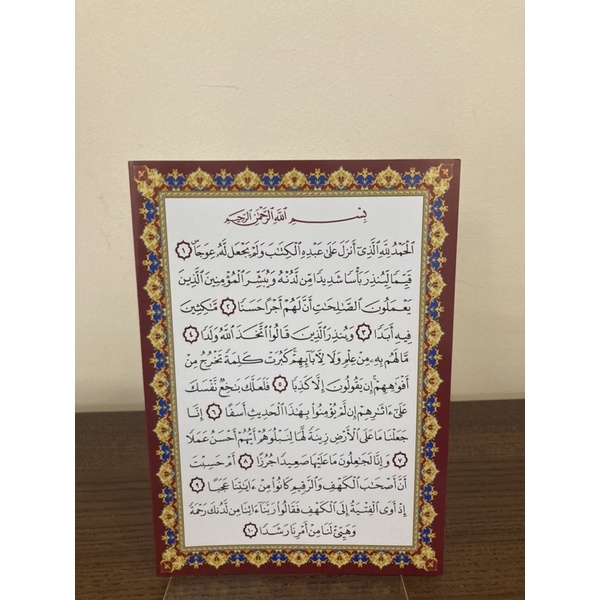 بِسْمِ ٱللَّهِ ٱلرَّحْمَٰنِ ٱلرَّحِيمِ
ٱلْحَمْدُ لِلَّهِ ٱلَّذِىٓ أَنزَلَ عَلَىٰ عَبْدِهِ ٱلْكِتَٰبَ وَلَمْ يَجْعَل لَّهُۥ عِوَجَاۜ ١
قَيِّمًا لِّيُنذِرَ بَأْسًا شَدِيدًا مِّن لَّدُنْهُ وَيُبَشِّرَ ٱلْمُؤْمِنِينَ ٱلَّذِينَ
يَعْمَلُونَ ٱلصَّٰلِحَٰتِ أَنَّ لَهُمْ أَجْرًا حَسَنًا ٢ مَّٰكِثِينَ
فِيهِ أَبَدًا ٣ وَيُنذِرَ ٱلَّذِينَ قَالُوا۟ ٱتَّخَذَ ٱللَّهُ وَلَدًا ٤
مَّا لَهُم بِهِۦ مِنْ عِلْمٍ وَلَا لِـَٔابَآئِهِمْ ۚ كَبُرَتْ كَلِمَةً تَخْرُجُ مِنْ
أَفْوَٰهِهِمْ ۚ إِن يَقُولُونَ إِلَّا كَذِبًا ٥ فَلَعَلَّكَ بَٰخِعٌ نَّفْسَكَ
عَلَىٰٓ ءَاثَٰرِهِمْ إِن لَّمْ يُؤْمِنُوا۟ بِهَٰذَا ٱلْحَدِيثِ أَسَفًا ٦ إِنَّا
جَعَلْنَا مَا عَلَى ٱلْأَرْضِ زِينَةً لَّهَا لِنَبْلُوَهُمْ أَيُّهُمْ أَحْسَنُ عَمَلًا
٧ وَإِنَّا لَجَٰعِلُونَ مَا عَلَيْهَا صَعِيدًا جُرُزًا ٨ أَمْ حَسِبْتَ
أَنَّ أَصْحَٰبَ ٱلْكَهْفِ وَٱلرَّقِيمِ كَانُوا۟ مِنْ ءَايَٰتِنَا عَجَبًا ٩
إِذْ أَوَى ٱلْفِتْيَةُ إِلَى ٱلْكَهْفِ فَقَالُوا۟ رَبَّنَآ ءَاتِنَا مِن لَّدُنكَ رَحْمَةً
وَهَيِّئْ لَنَا مِنْ أَمْرِنَا رَشَدًا ١٠